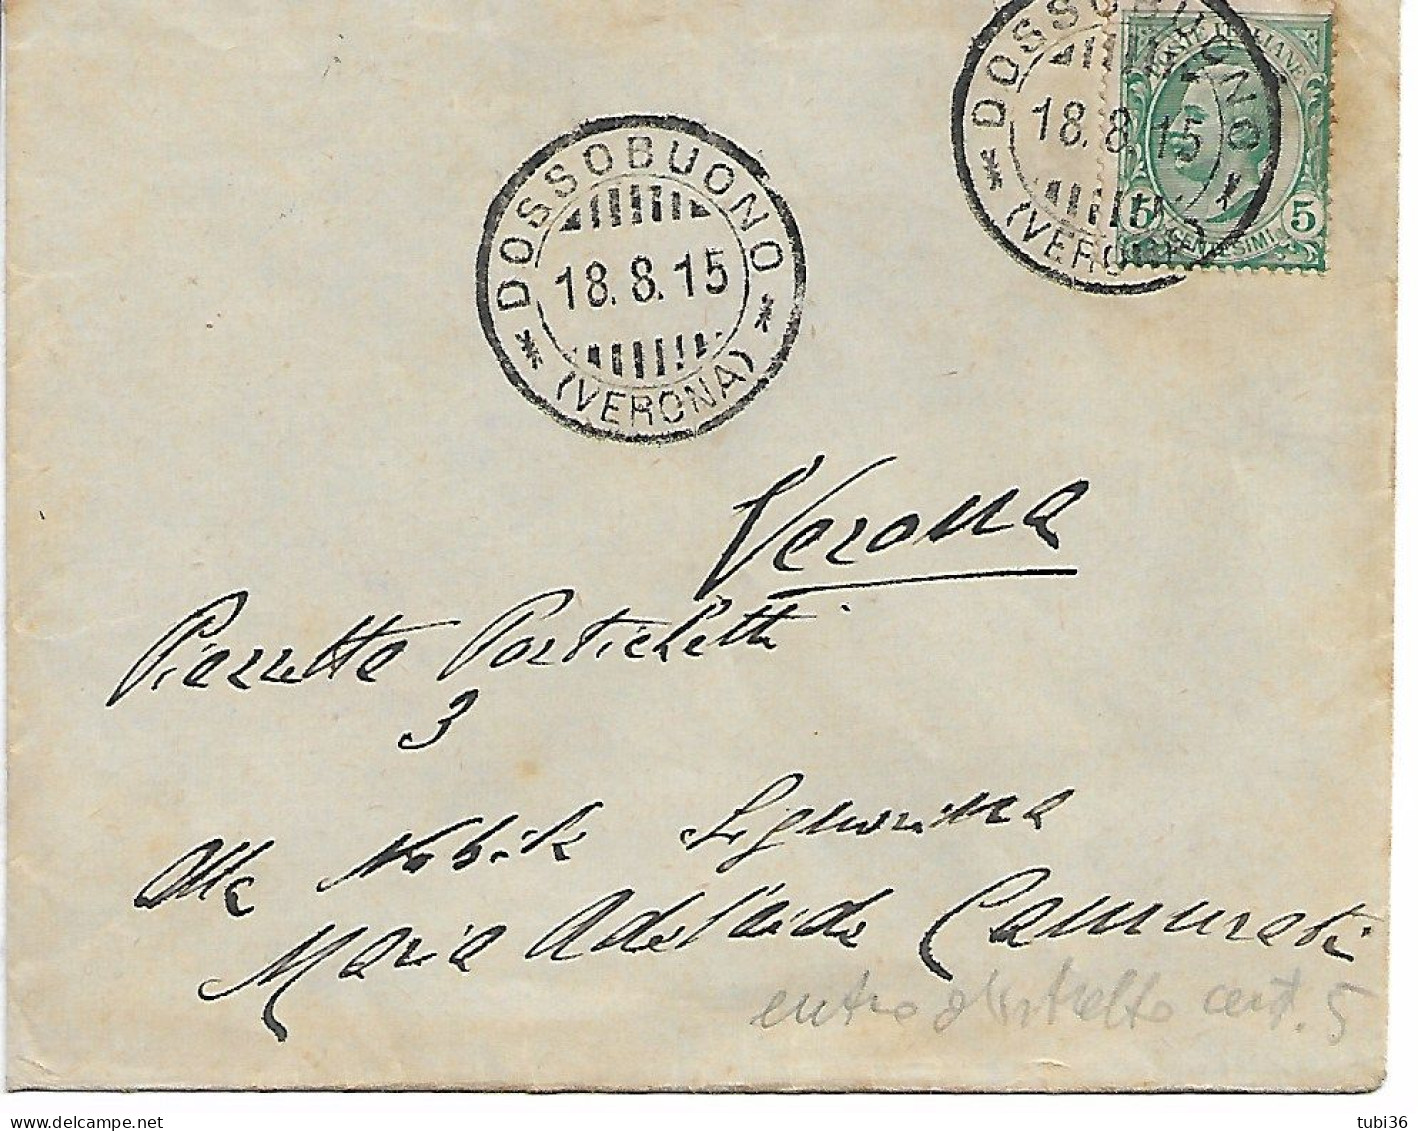 DOSSOBUONO
18.8.15
(VERONA)
DOSSOBUONO
18.8.15
(VERONA)
POSTE ITALIANE
5 5
CENTESIMI
Verona
Pierretta Portichetti
3
Alla Nobile Signorina
Maria Adelaide Camurati
entro distretto cent. 5
www.delcampe.net
tubi36